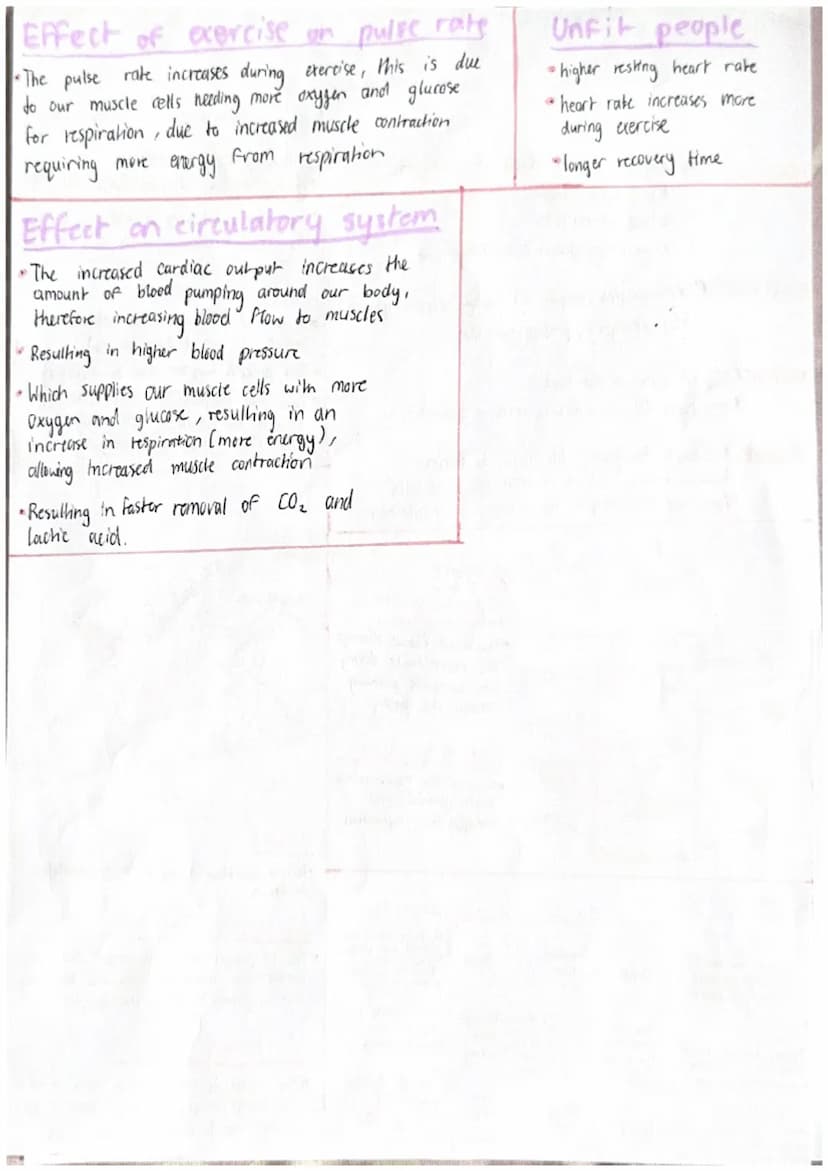 Effect of exercise on pulse rate
• The pulse rate increases during exercise, this is due
to our muscle cells needing more oxygen and glucose
for respiration, due to increased muscle contraction
requiring more energy from respiration
Unfit people
• higher resting heart rate
• heart rate increases more
during exercise
• longer recovery time
Effect on circulatory system
• The increased cardiac output increases the
amount of blood pumping around our body,
therefore increasing blood flow to muscles
• Resulting in higher blood pressure
• Which supplies our muscle cells with more
oxygen and glucose, resulting in an
increase in respiration (more energy),
allowing increased muscle contraction
• Resulting in faster removal of CO₂ and
lactic acid.